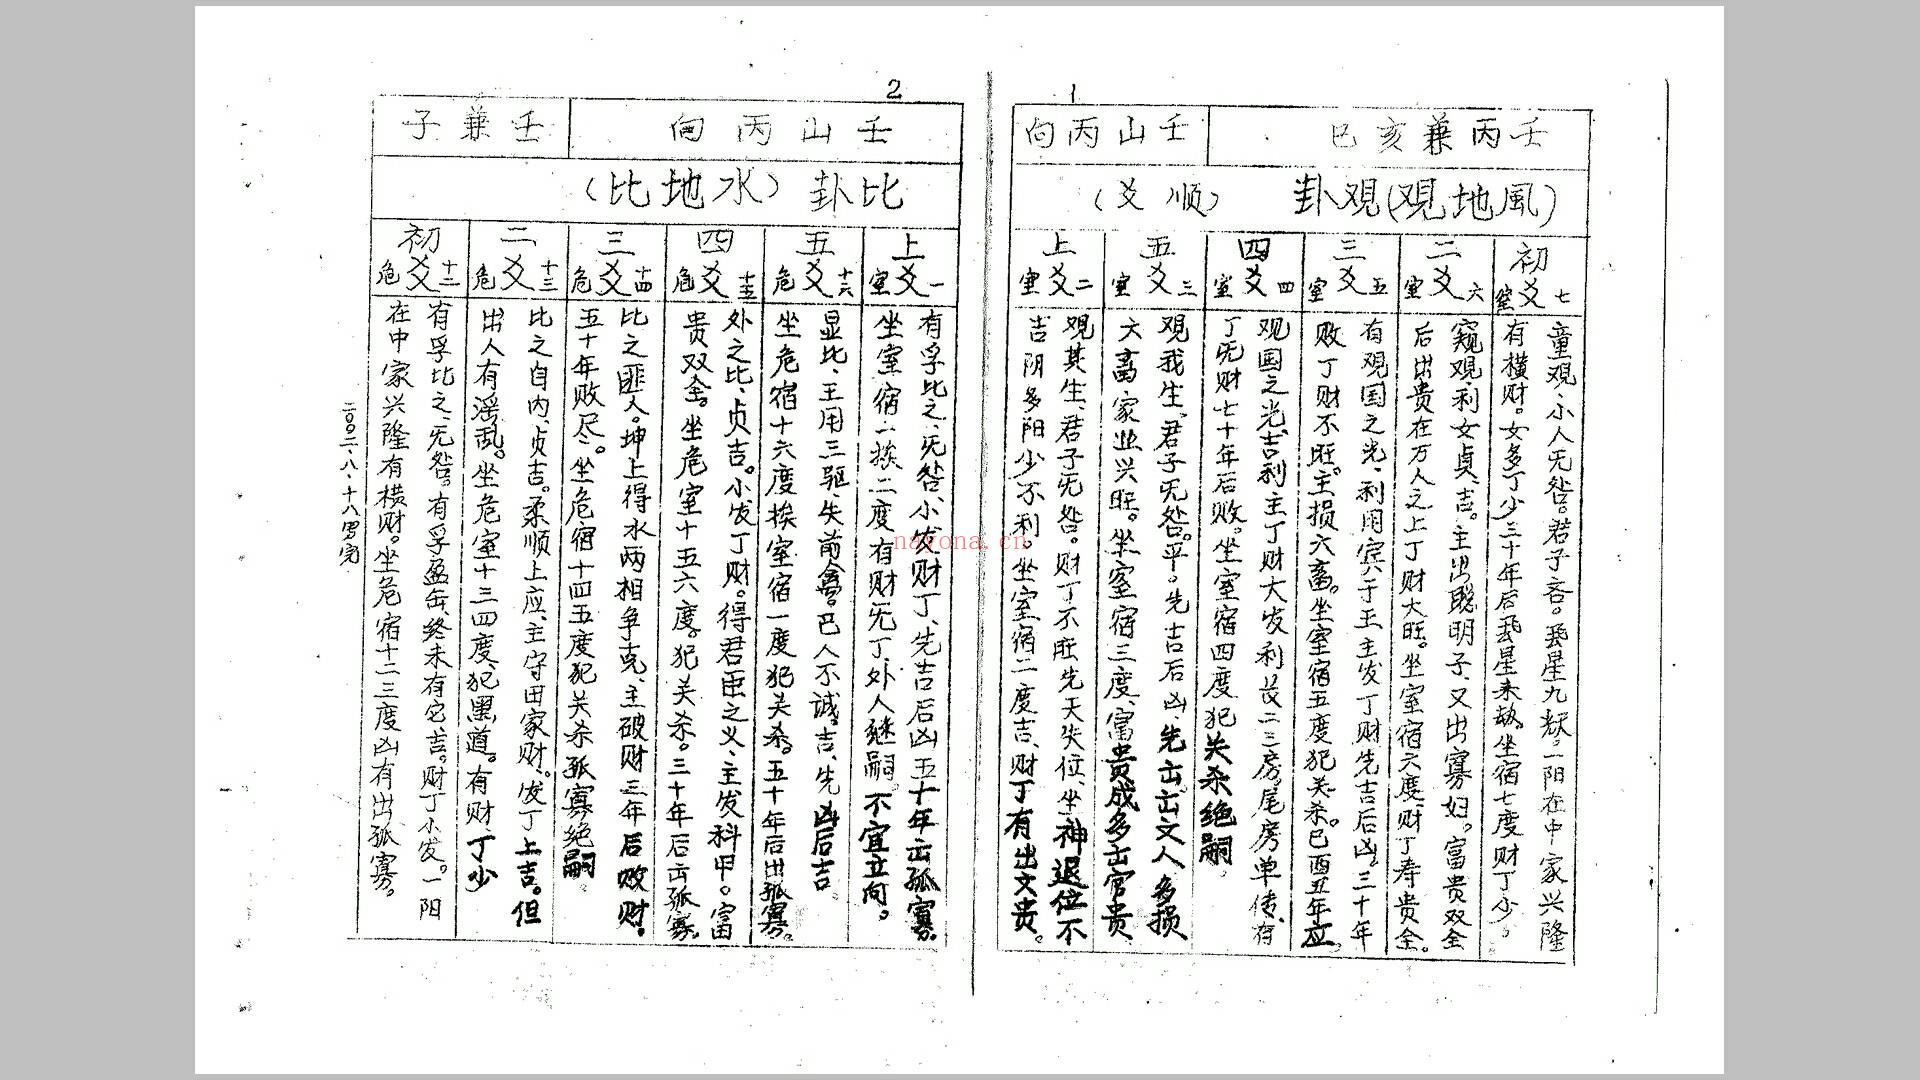 1
壬丙兼亥巳
壬山丙向
風地观(观卦
(顺爻)
初爻
七
室
童观、小人无咎。君子吝。飛星九
一阳在中家兴隆
有横财。女多丁少三十年后飛星未劫。坐宿七度财丁少。
二爻
六
室
窥观、利女贞、吉。主出聪明子、又出寡妇。富贵双全
后出贵在万人之上丁财大旺。坐室宿六度、财丁寿贵全。
三爻
五
室
有观国之光、利用宾于王主发丁财先吉后凶。三十年
败丁财不旺。主损六畜。坐室宿五度犯关杀。巳酉丑年应。
四爻
四
室
观国之光、吉利主丁财大发利
二三房尾房单传、有
丁无财七十年后败。坐室宿四度犯关杀绝嗣。
五爻
三
室
观我生、君子无咎。平。先吉后凶、先出出文人、多损
六畜、家业兴旺。坐室宿三度、富贵成多出官贵
上爻
二
室
观其生、君子无咎。财丁不旺先天失位、坐神退位不
吉阴多阳少不利、坐室宿二度吉、财丁有出文贵。
2
壬山丙向
壬兼子
比卦(水地比)
上爻
一
室
有孚比之、无咎、小发财丁、先吉后凶五十年出孤寡。
坐室宿一挨二度、有财无丁、外人继嗣。不宜立向。
五爻
十六
危
显比、王用三驱、失前禽。邑人不诚。吉、先凶后吉
坐危宿十六度挨室宿一度犯关杀。五十年后出孤寡。
四爻
十五
危
外之比、贞吉。小发丁财。得君臣之义、主发科甲。富
贵双全。坐危室十五六度。犯关杀。三十年后出孤寡。
三爻
十四
危
比之匪人。坤上得水两相争克、主破财三年后败财。
五十年败尽。坐危宿十四五度犯关杀孤寡绝嗣。
二爻
十三
危
比之自内、贞吉。柔顺上应、主守田家财、发丁上吉。但
出人有淫乱。坐危室十三四度、犯黑道。有财丁少
初爻
十二
危
有孚比之、无咎。有孚盈缶、终未有它、吉。财丁小发。一阳
在中家兴隆有横财。坐危宿十二三度凶有出孤寡。
二〇〇二、八、十八写完
nayona.cn